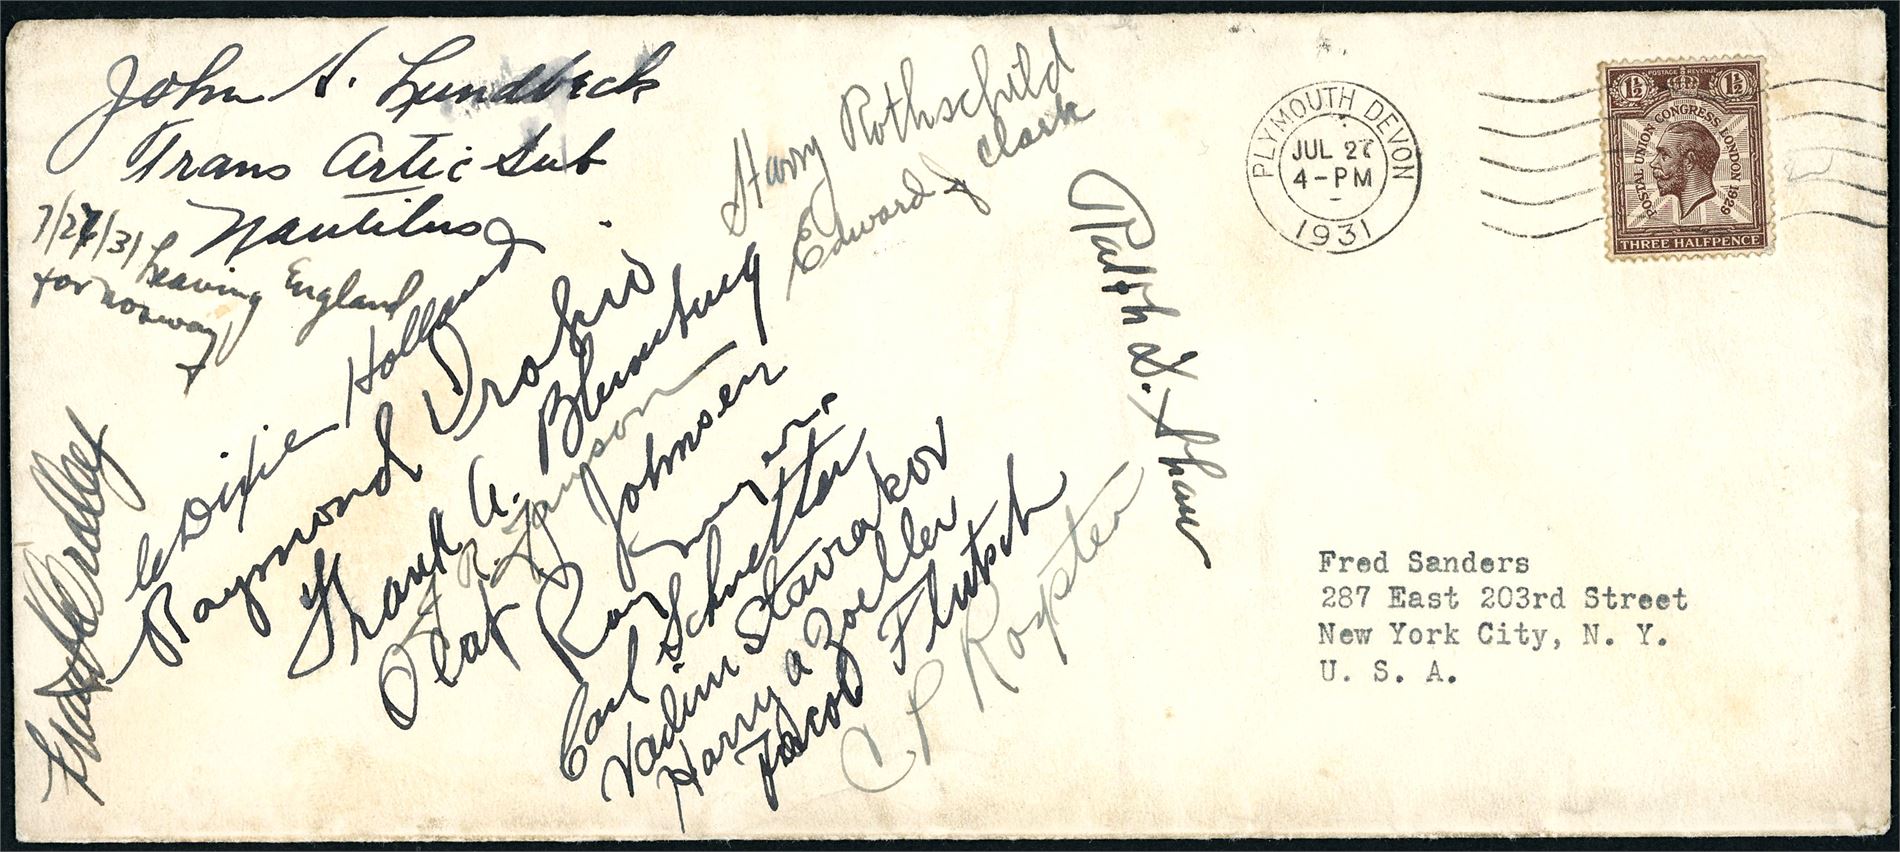 John H. Lundbeck
Trans Artic Sub
Nautilus
7/27/31 Leaving England
for Norway
Dixie Holland
Raymond Drahin
Frank A. Blumburg
R. Jamyson
Olaf Johnsen
Ray Meyers.
Carl Schnetter
Vadim Stavrakov
Harry A Zoeller
Flutsch
C P Royster
Harry Rothschild
Edward J Clark
Ralph D. Shaw
PLYMOUTH DEVON
JUL 27
4-PM
1931
POSTAGE REVENUE
1½ 1½
POSTAL UNION CONGRESS LONDON 1929
THREE HALFPENCE
Fred Sanders
287 East 203rd Street
New York City, N. Y.
U. S. A.